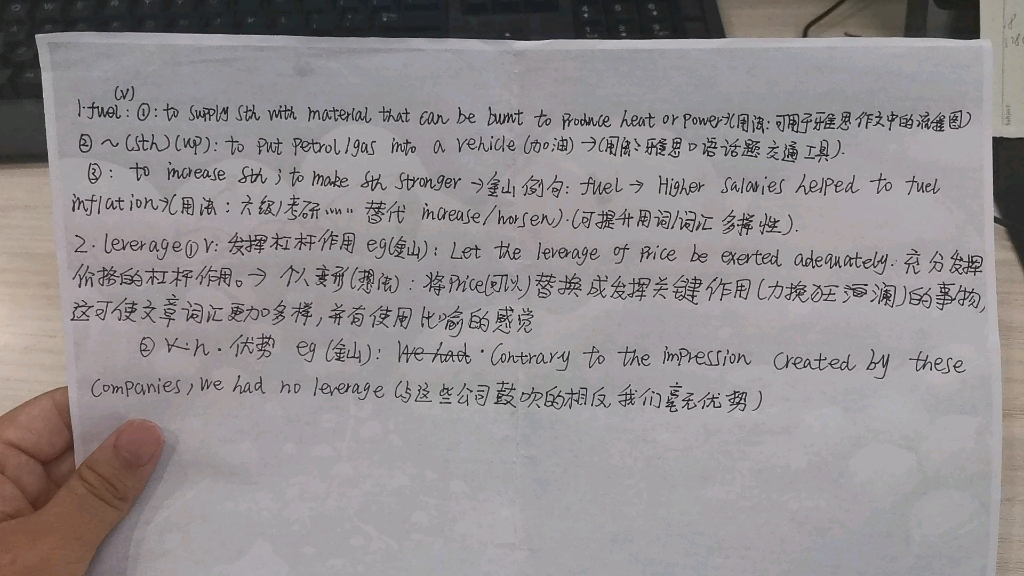 (v)
1.fuel: ①: to supply sth with material that can be burnt to produce heat or power→(用法:可用于雅思作文中的流程图)
② ~(sth)(up): to put petrol/gas into a vehicle(加油)→(用法:雅思口语话题交通工具).
③: to increase sth; to make sth stronger→金山例句: fuel → Higher salaries helped to fuel
inflation→(用法: 六级/考研...... 替代 increase/worsen).(可提升用词/词汇多样性).
2. leverage①v: 发挥杠杆作用 eg(金山): Let the leverage of price be exerted adequately. 充分发挥
价格的杠杆作用。→ 个人变形(想法): 将price(可以)替换成发挥关键作用(力挽狂澜)的事物,
这可使文章词汇更加多样,并有使用比喻的感觉
② n. 优势 eg(金山): We had. Contrary to the impression created by these
companies, we had no leverage(与这些公司鼓吹的相反我们毫无优势)